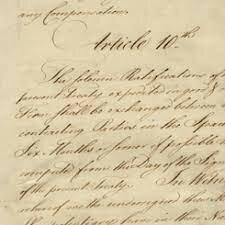 any Compensation.
Article 10.th
The solemn Ratifications of
present Treaty expedited in good &
Form shall be exchanged between
contracting Parties in the Space
Six Months or sooner if possible
computed from the Day of the Sig
of the present Treaty. In Witne
whereof we the undersigned
their Na